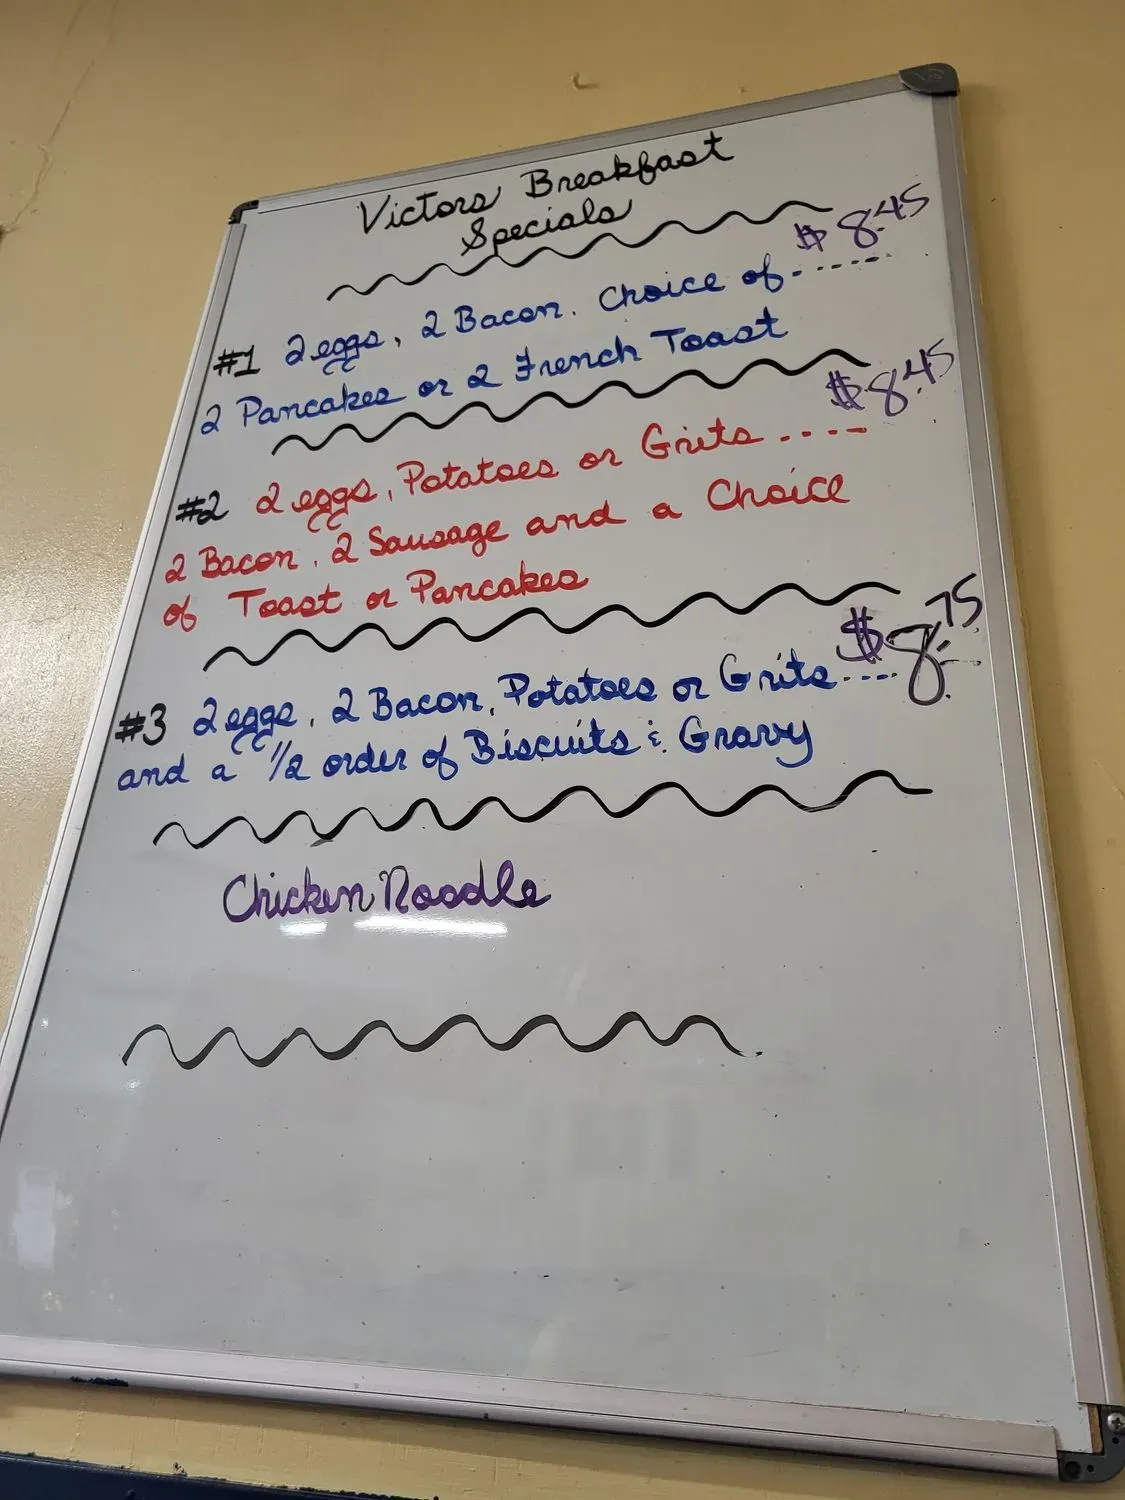 Victors Breakfast
Specials
#1 2 eggs, 2 Bacon. Choice of ----- $8.45
2 Pancakes or 2 French Toast
#2 2 eggs, Potatoes or Grits .... $8.45
2 Bacon, 2 Sausage and a Choice
of Toast or Pancakes
#3 2 eggs, 2 Bacon, Potatoes or Grits .... $8.75
and a 1/2 order of Biscuits & Gravy
Chicken Noodle